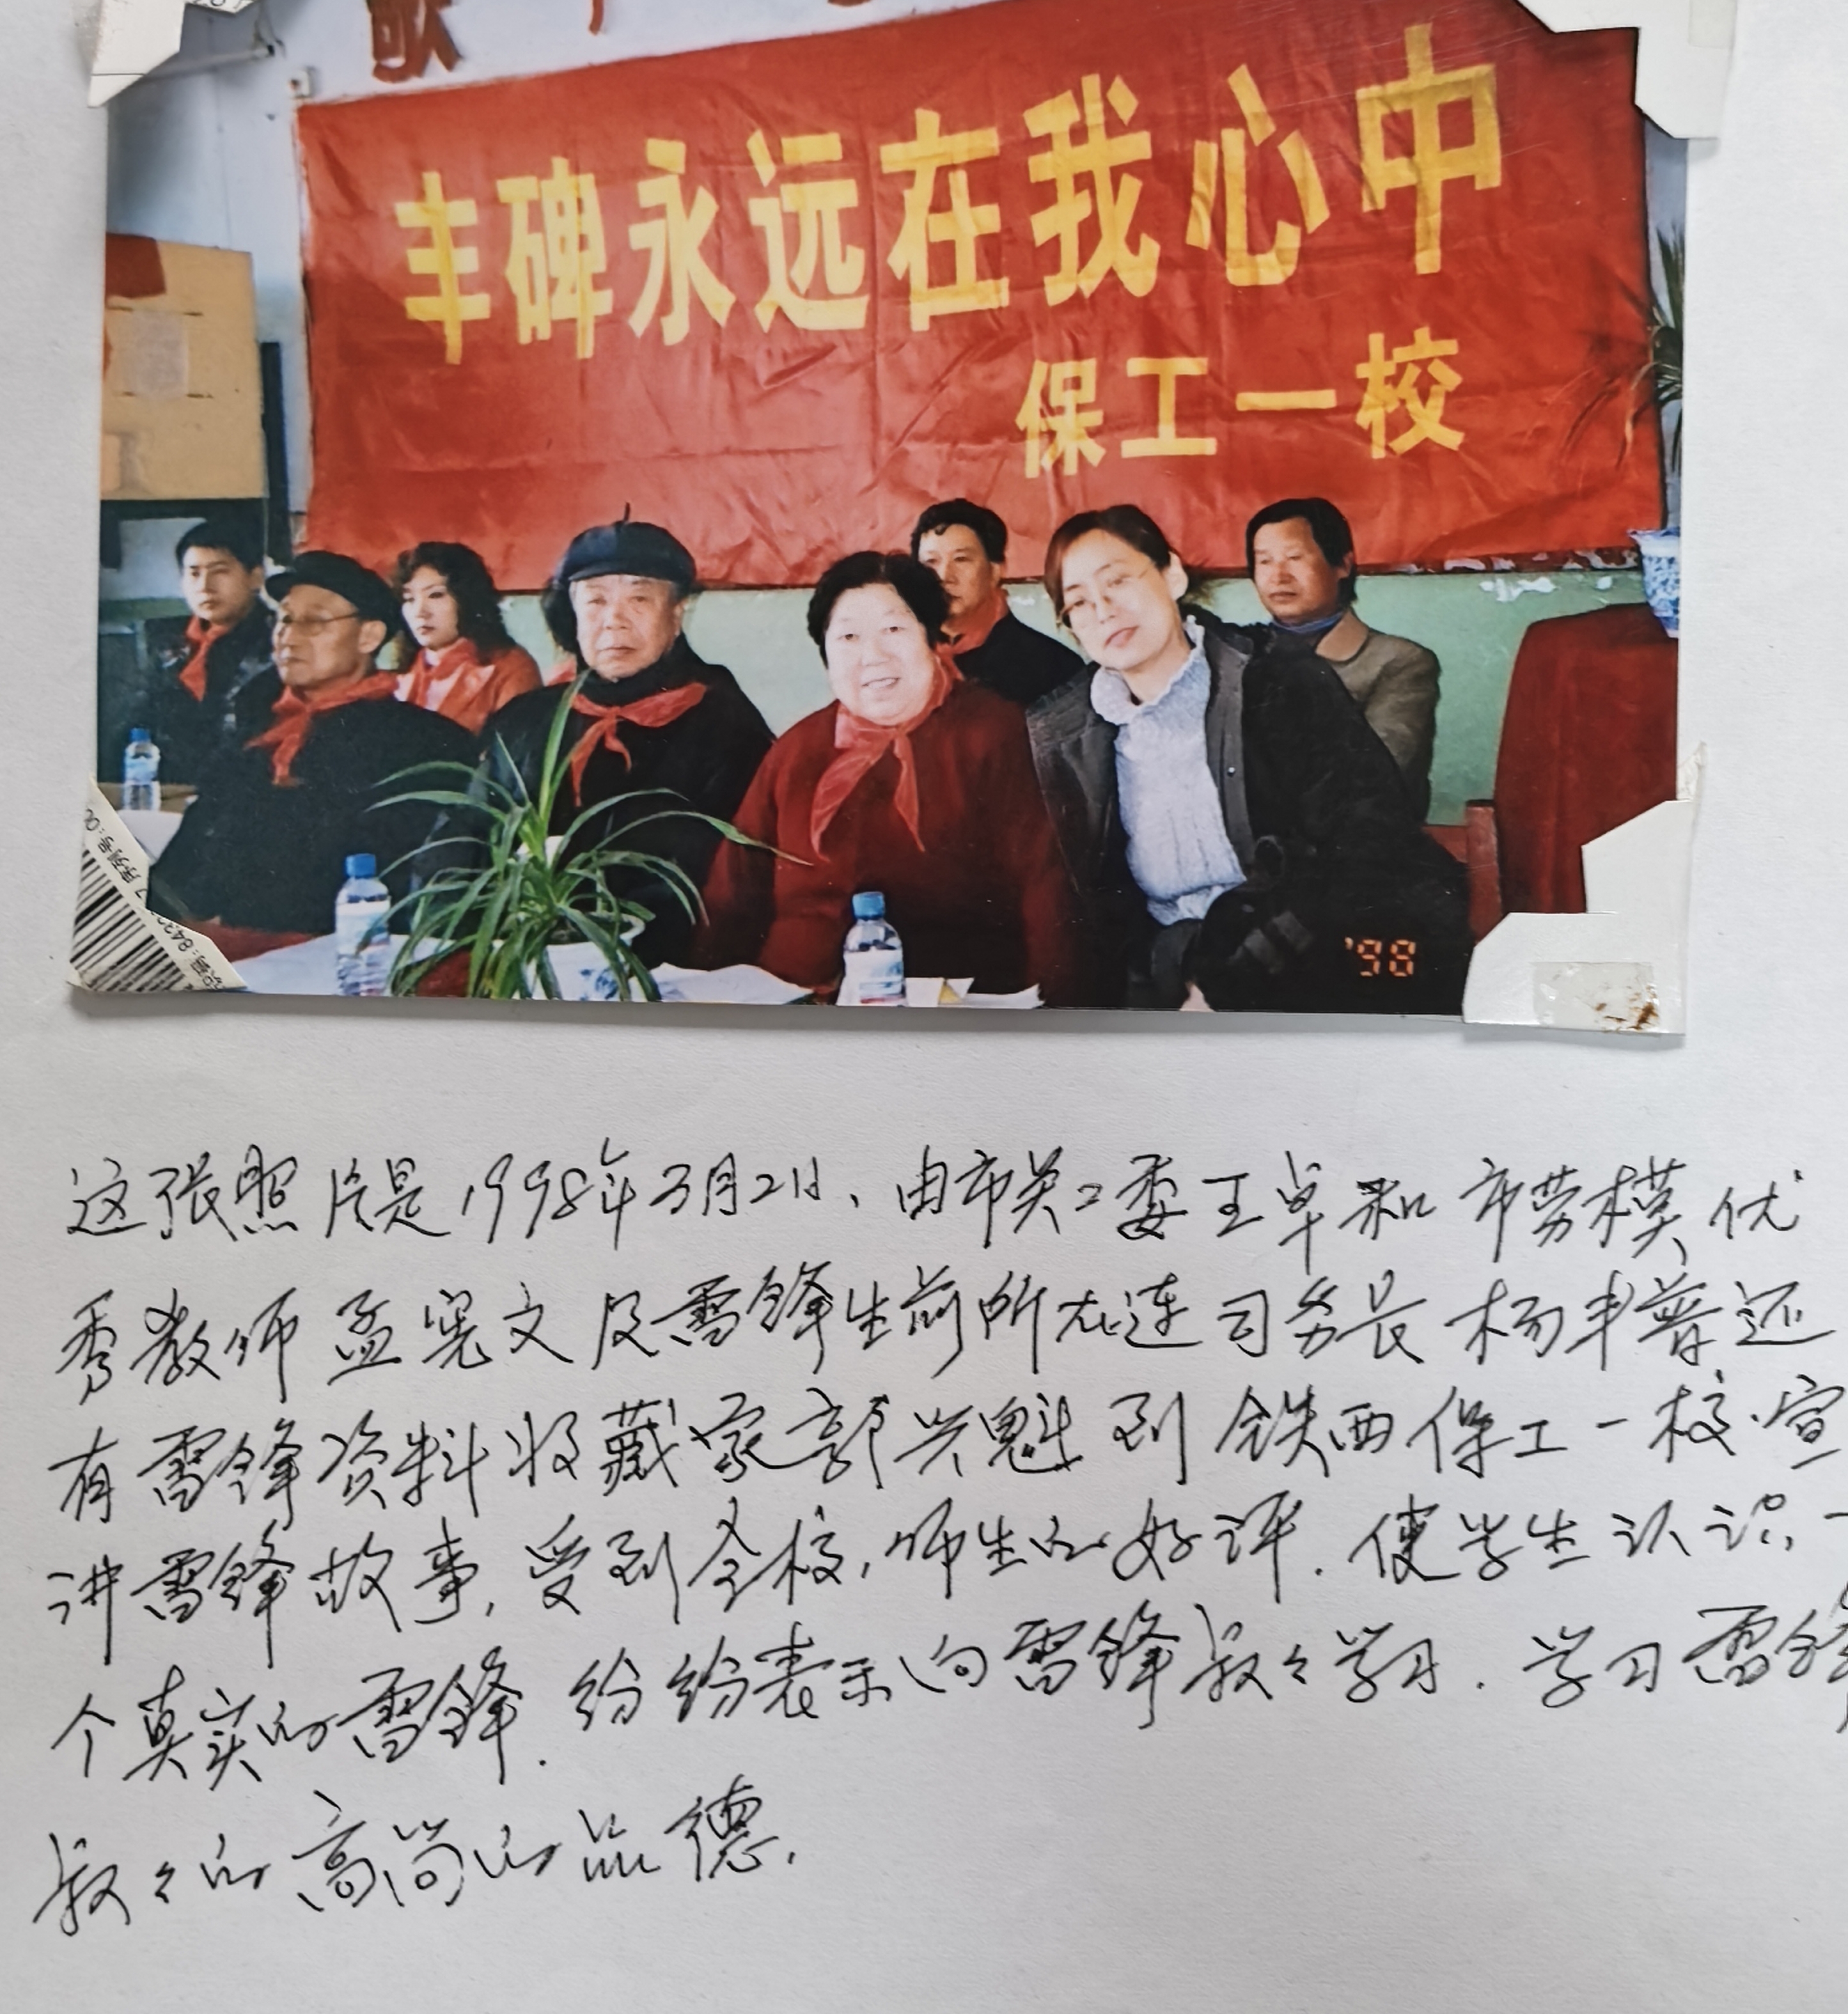 歌
丰碑永远在我心中
保工一校
'98
序列号:00
这张照片是1998年3月2日、由市关工委王卓和市劳模优
秀教师孟宪文及雷锋生前所在连司务长杨丰普还
有雷锋资料收藏家郭兴魁到铁西保工一校.宣
讲雷锋故事,受到全校,师生的好评.使学生认识一
个真实的雷锋.纷纷表示向雷锋叔々学习.学习雷锋
叔々的高尚的品德.